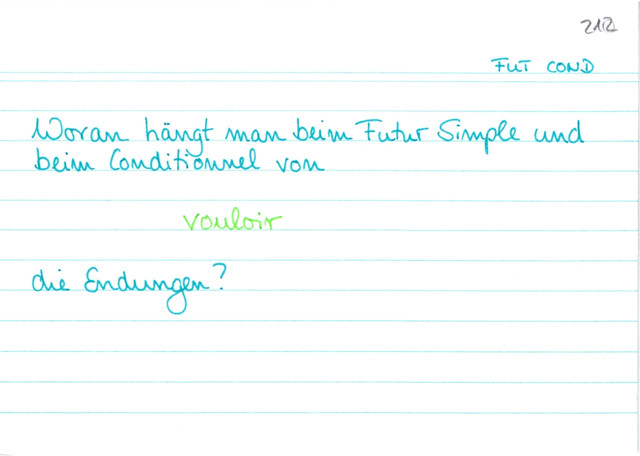 FUT COND
Woran hängt man beim Futur Simple und
beim Conditionnel von
vouloir
die Endungen?